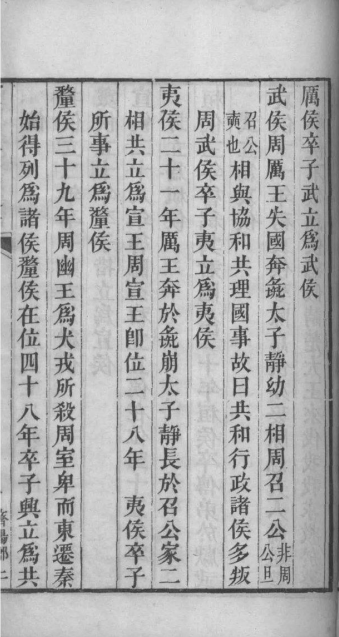 厲侯卒子武立爲武侯
武侯周厲王失國奔彘太子靜幼二相周召二公非周公旦
召公奭也相與協和共理國事故曰共和行政諸侯多叛
周武侯卒子夷立爲夷侯
夷侯二十一年厲王奔於彘崩太子靜長於召公家二
相共立爲宣王周宣王卽位二十八年 夷侯卒子
所事立爲釐侯
釐侯三十九年周幽王爲犬戎所殺周室卑而東遷秦
始得列爲諸侯釐侯在位四十八年卒子興立爲共